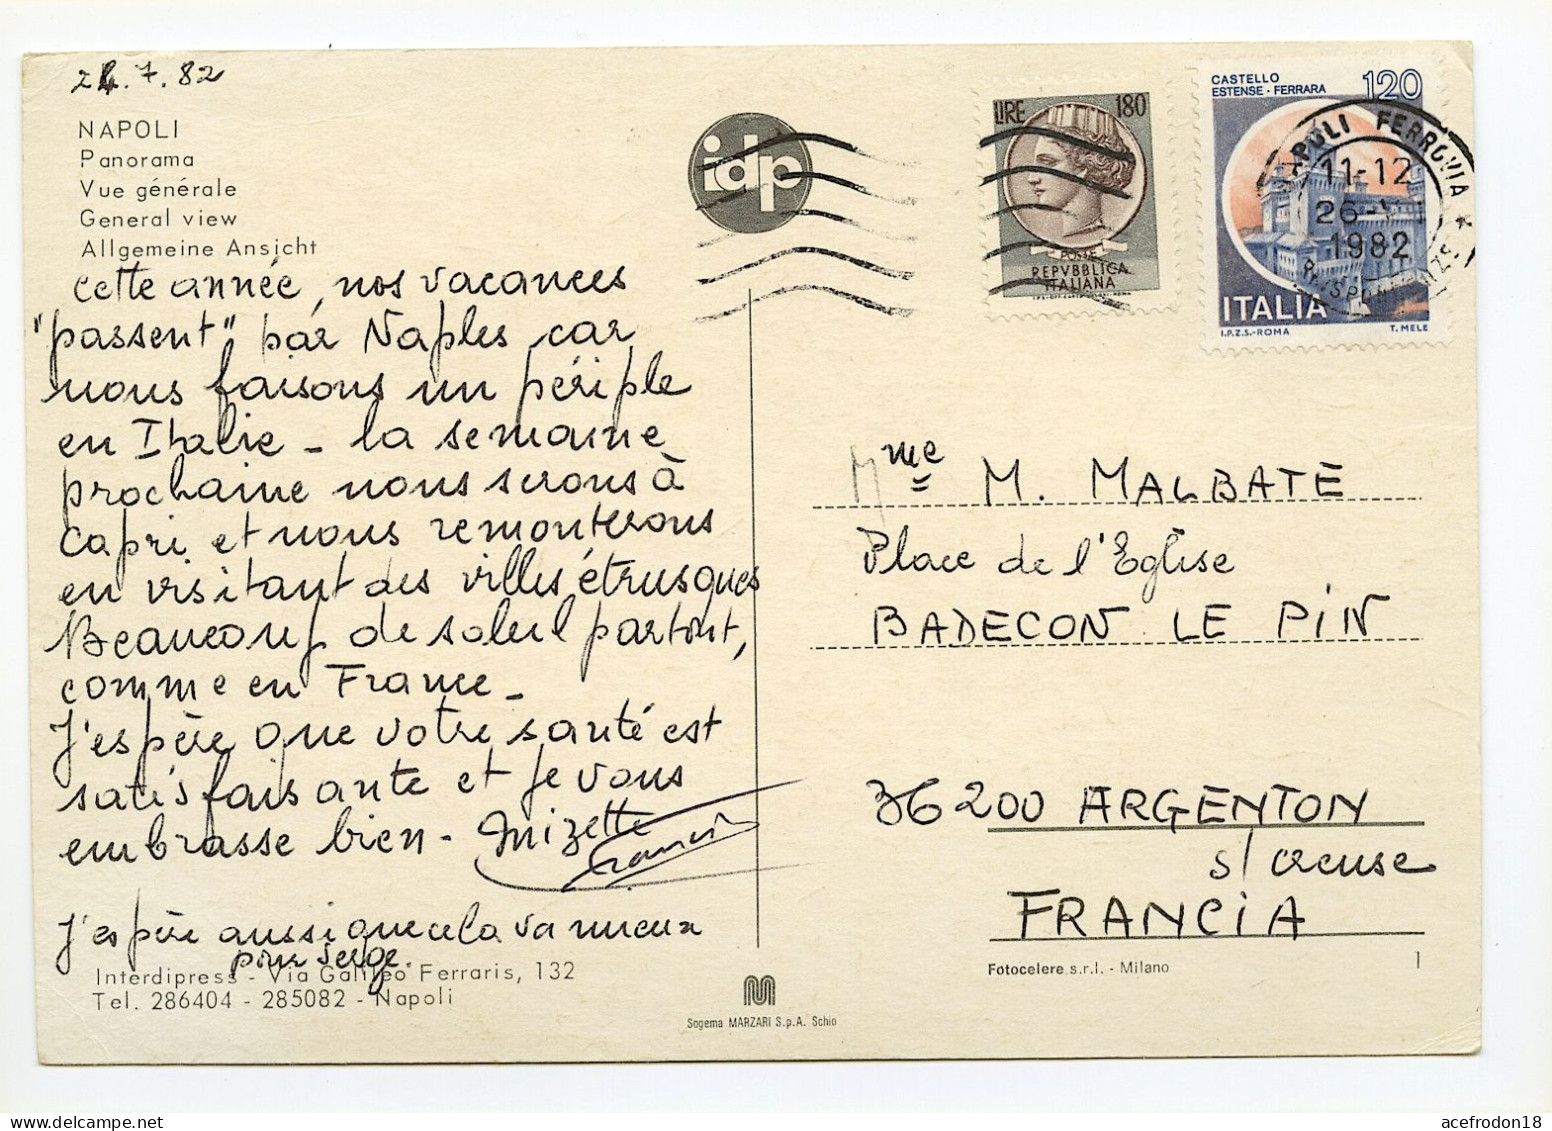 24.7.82
NAPOLI
Panorama
Vue générale
General view
Allgemeine Ansicht
cette année, nos vacances
"passent" par Naples car
nous faisons un périple
en Italie - la semaine
prochaine nous serons à
Capri et nous remonterons
en visitant des villes étrusques
Beaucoup de soleil partout,
comme en France -
J'espère que votre santé est
satisfaisante et je vous
embrasse bien - Mizette
Francis
J'espère aussi que cela va mieux
pour Serge.
Interdipress - Via Galileo Ferraris, 132
Tel. 286404 - 285082 - Napoli
idp
LIRE 180
POSTE
REPVBBLICA
ITALIANA
CASTELLO
ESTENSE - FERRARA
120
ITALIA
I.P.Z.S.-ROMA T. MELE
NAPOLI FERROVIA
11-12
26-
1982
Mme M. MALBATE
Place de l'Eglise
BADECON LE PIN
36200 ARGENTON
s/ creuse
FRANCIA
Fotocelere s.r.l. - Milano
1
Sogema MARZARI S.p.A. Schio
acefrodon18